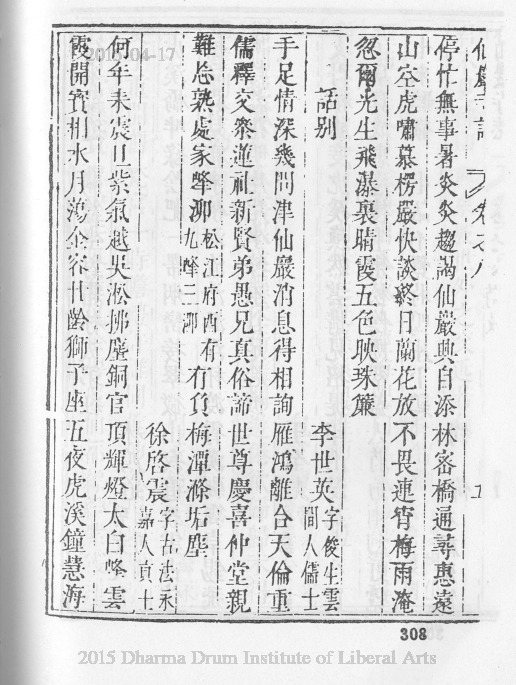 仙巖 卷之八
停忙無事暑炎炎趨謁仙巖興自添林密橋通尋惠遠
山空虎嘯慕楞嚴快談終日蘭花放不畏連宵梅雨淹
忽爾光生飛瀑裏晴霞五色映珠簾
話别 李世英 字俊生雲間人儒士
手足情深幾問津仙巖消息得相詢雁鴻離合天倫重
儒釋交參蓮社新賢弟愚兄真俗諦世尊慶喜仲堂親
難忘熟處家峰泖 松江府西有九峰三泖 冇負梅潭滌垢塵
徐啓震 字古法永嘉人貢士
何年来震旦紫氣越吳淞拂塵銅官頂輝燈太白峰雲
霞開寳相水月蕩金容廿齡獅子座五夜虎溪鐘慧海
308
2015-04-17
2015 Dharma Drum Institute of Liberal Arts